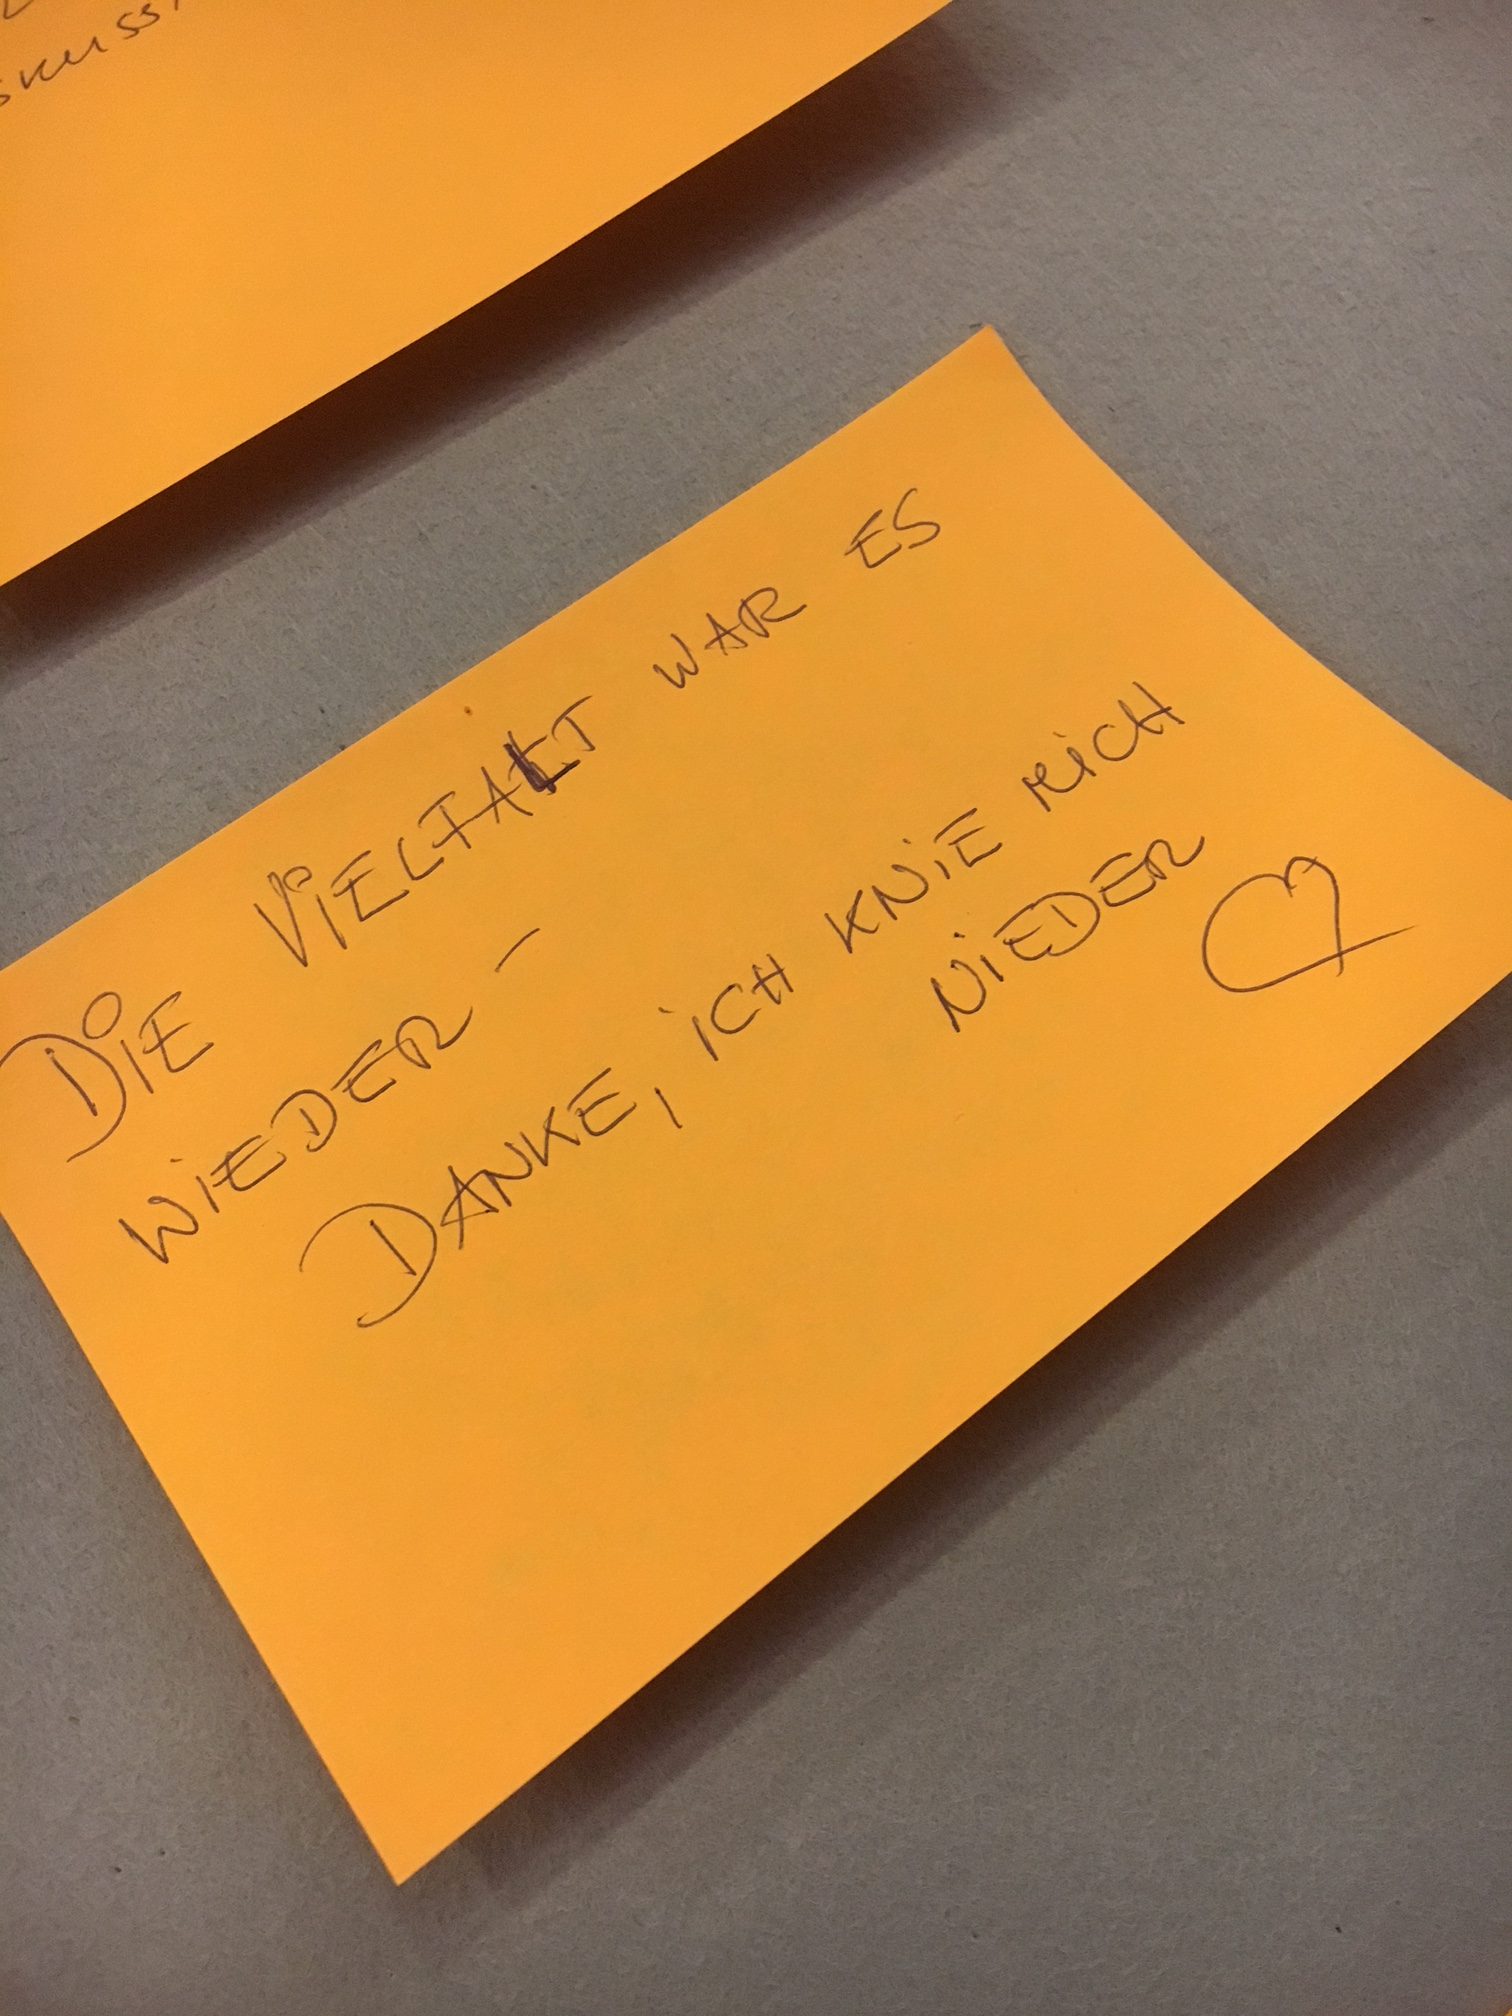 DIE VIELFALT WAR ES
WIEDER -
DANKE, ICH KNIE MICH
NIEDER